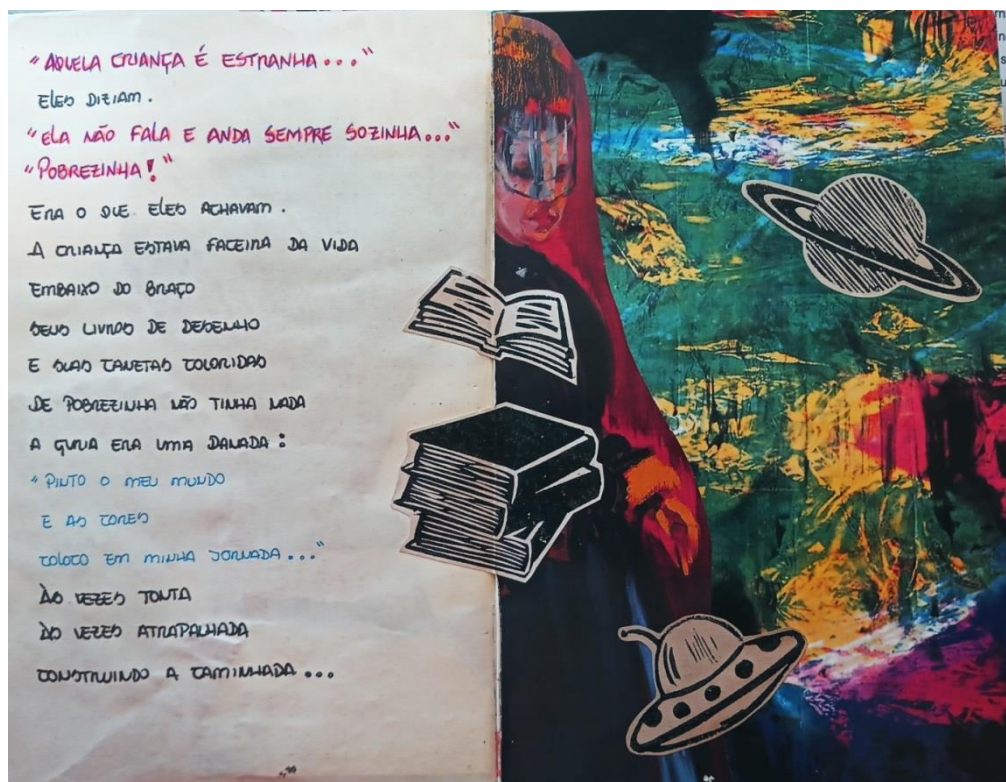 "AQUELA CRIANÇA É ESTRANHA..."
ELES DIZIAM.
"ELA NÃO FALA E ANDA SEMPRE SOZINHA..."
"POBREZINHA!"
ERA O QUE ELES ACHAVAM.
A CRIANÇA ESTAVA FACEIRA DA VIDA
EMBAIXO DO BRAÇO
SEUS LIVROS DE DESENHO
E SUAS CANETAS COLORIDAS
DE POBREZINHA NÃO TINHA NADA
A GURIA ERA UMA DANADA:
"PINTO O MEU MUNDO
E AS CORES
COLOCO EM MINHA JORNADA..."
ÀS VEZES TONTA
ÀS VEZES ATRAPALHADA
CONSTRUINDO A CAMINHADA...